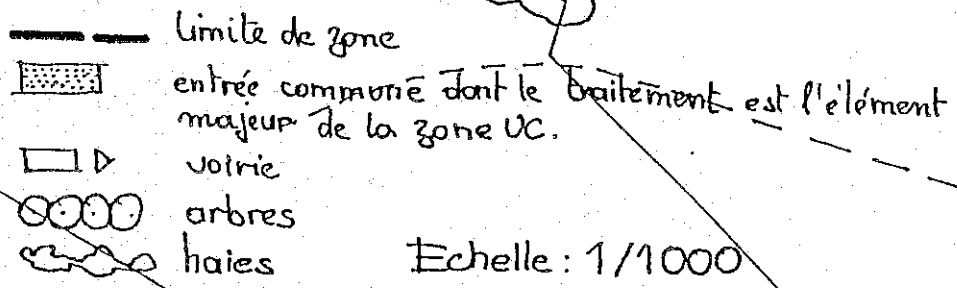 limite de zone
entrée commune dont le traitement est l'élément
majeur de la zone UC.
voirie
arbres
haies
Echelle : 1/1000